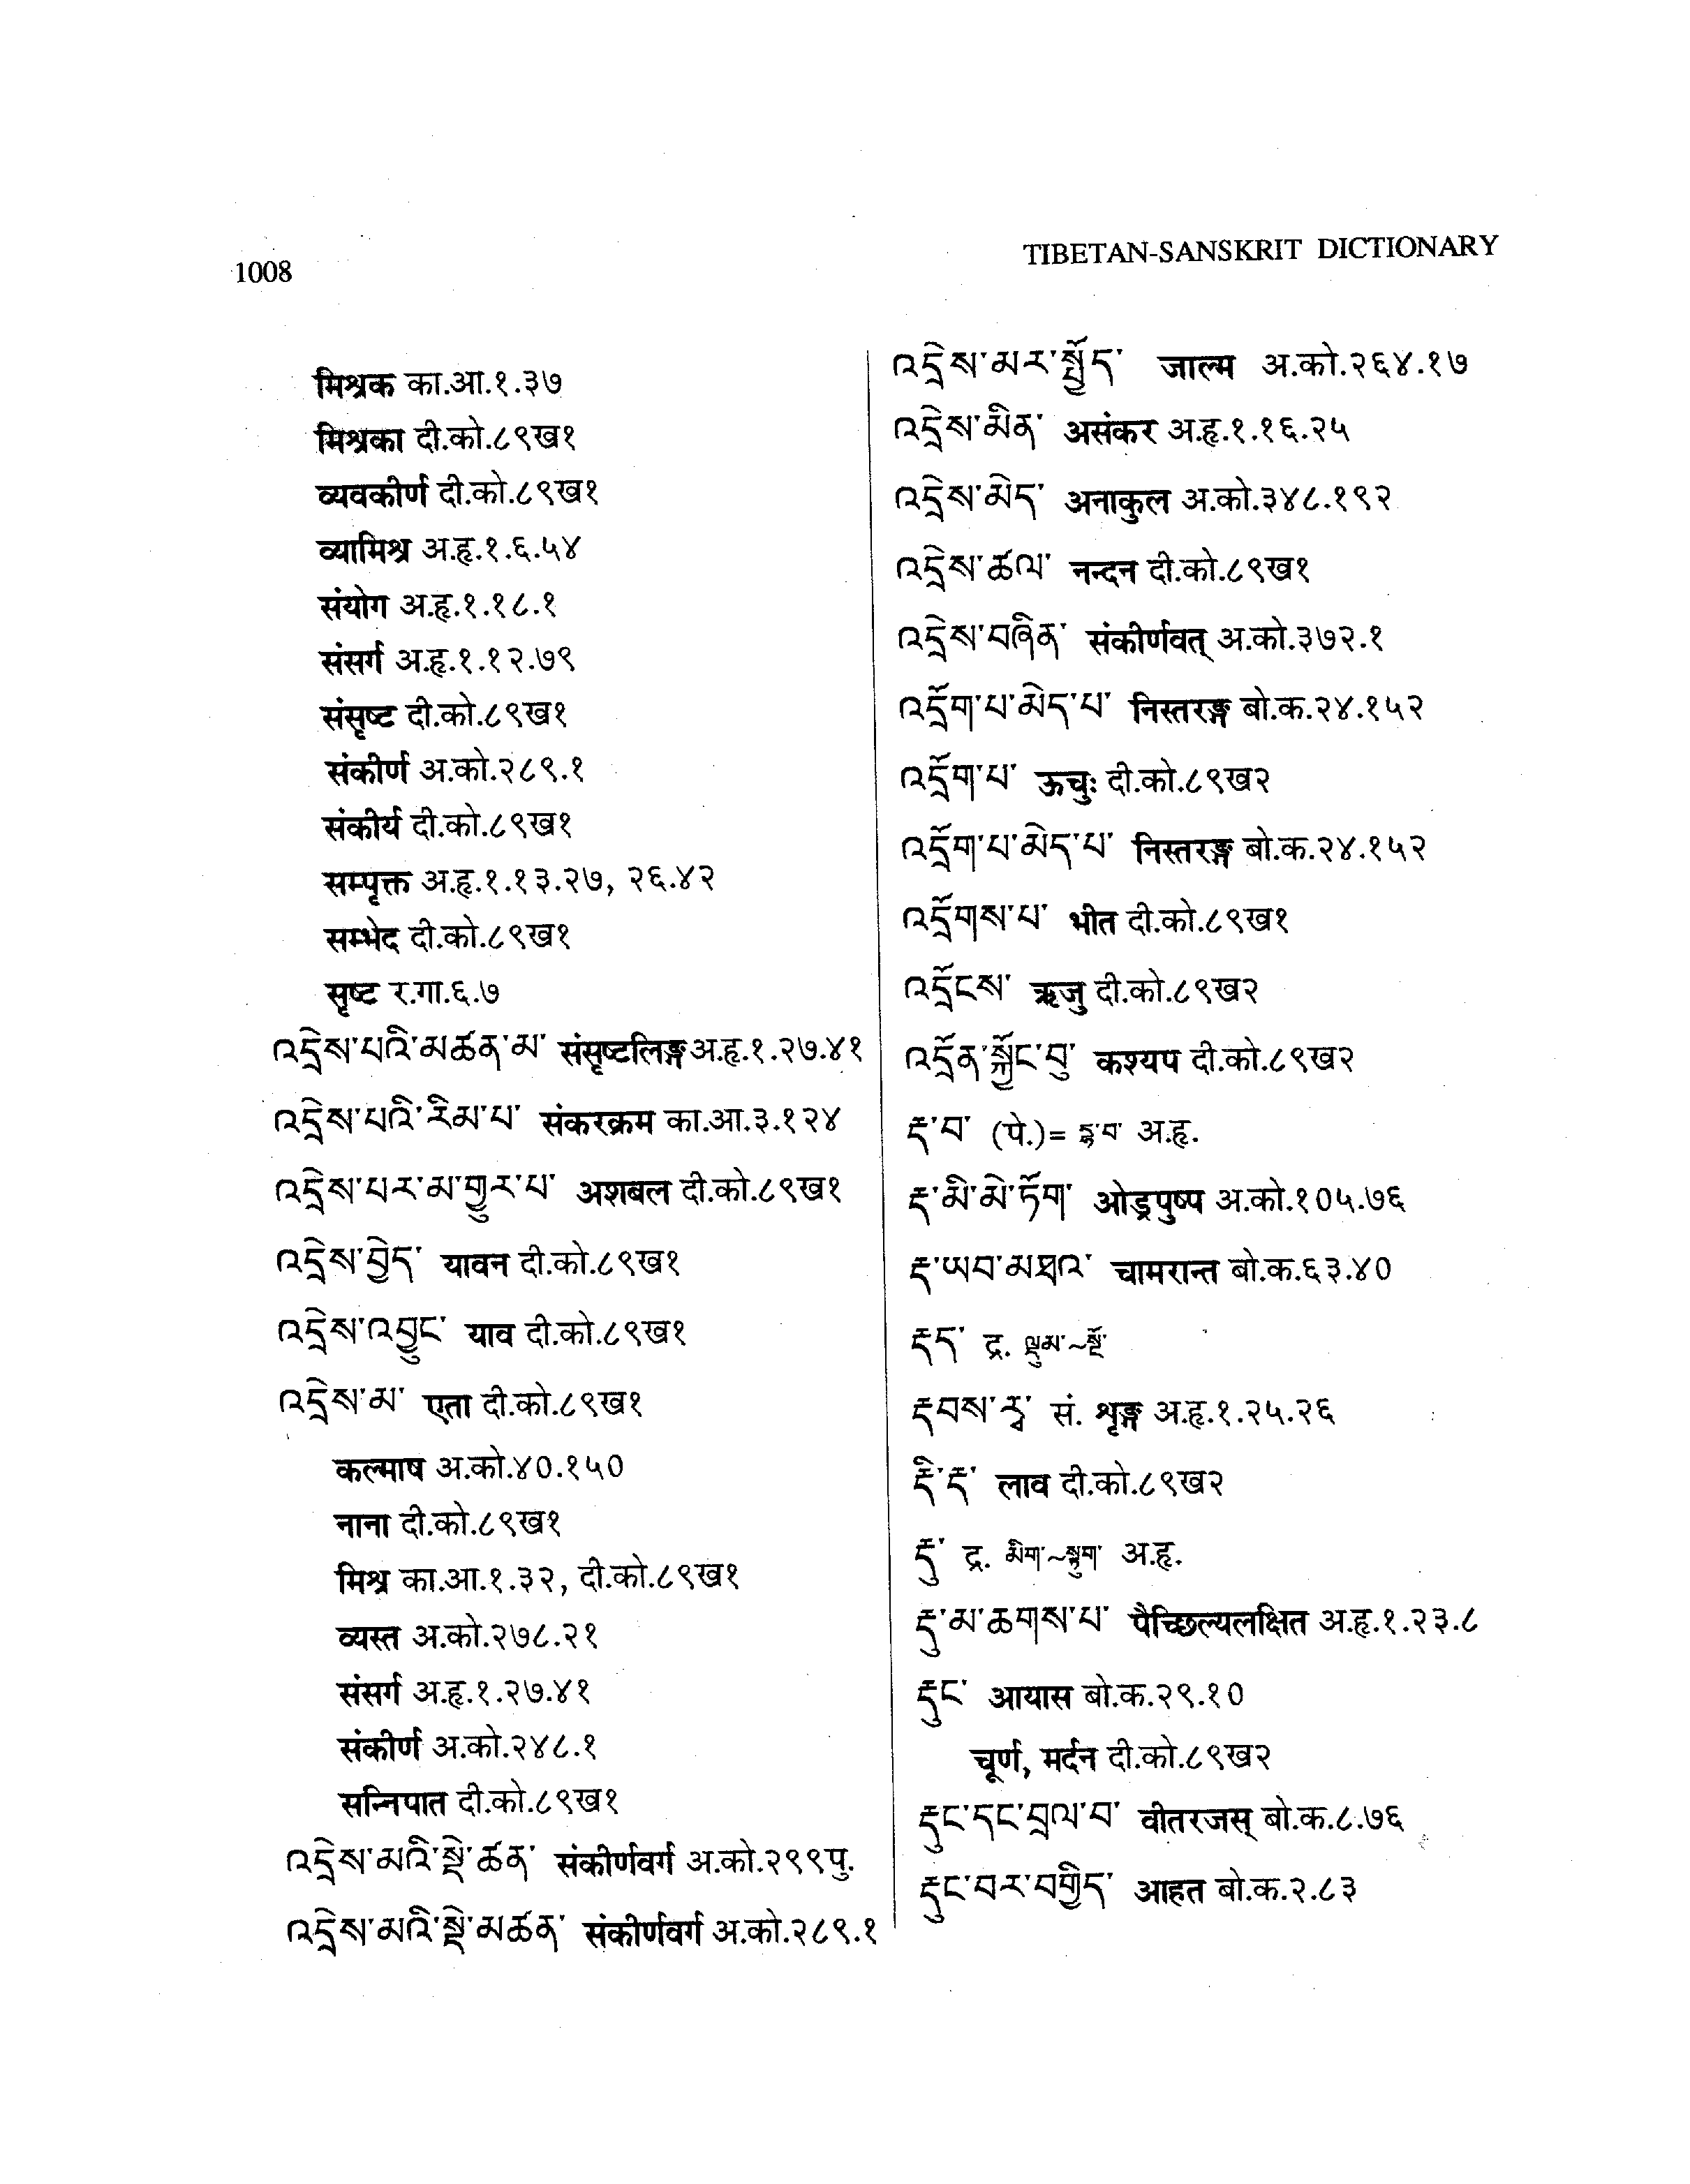 1008
TIBETAN-SANSKRIT DICTIONARY
मिश्रक का.आ.१.३७
मिश्रका दी.को.८९ख१
व्यवकीर्ण दी.को.८९ख१
व्यामिश्र अ.हृ.१.६.५४
संयोग अ.हृ.१.१८.१
संसर्ग अ.हृ.१.१२.७९
संसृष्ट दी.को.८९ख१
संकीर्ण अ.को.२८९.१
संकीर्य दी.को.८९ख१
सम्पृक्त अ.हृ.१.१३.२७, २६.४२
सम्भेद दी.को.८९ख१
सृष्ट र.गा.६.७
འདྲེས་པའི་མཚན་མ་ संसृष्टलिङ्ग अ.हृ.१.२७.४१
འདྲེས་པའི་རིམ་པ་ संकरक्रम का.आ.३.१२४
འདྲེས་པར་མ་གྱུར་པ་ अशबल दी.को.८९ख१
འདྲེས་བྱེད་ यावन दी.को.८९ख१
འདྲེས་འབྱུང་ याव दी.को.८९ख१
འདྲེས་མ་ एता दी.को.८९ख१
कल्माष अ.को.४०.१५०
नाना दी.को.८९ख१
मिश्र का.आ.१.३२, दी.को.८९ख१
व्यस्त अ.को.२७८.२१
संसर्ग अ.हृ.१.२७.४१
संकीर्ण अ.को.२४८.१
सन्निपात दी.को.८९ख१
འདྲེས་མའི་སྡེ་ཚན་ संकीर्णवर्ग अ.को.२९९पु.
འདྲེས་མའི་སྡེ་མཚན་ संकीर्णवर्ग अ.को.२८९.१
འདྲེས་མར་སྤྱོད་ जाल्म अ.को.२६४.१७
འདྲེས་མིན་ असंकर अ.हृ.१.१६.२५
འདྲེས་མེད་ अनाकुल अ.को.३४८.१९२
འདྲེས་ཚལ་ नन्दन दी.को.८९ख१
འདྲེས་བཞིན་ संकीर्णवत् अ.को.३७२.१
འདྲོག་པ་མེད་པ་ निस्तरङ्ग बो.क.२४.१५२
འདྲོག་པ་ ऊचुः दी.को.८९ख२
འདྲོག་པ་མེད་པ་ निस्तरङ्ग बो.क.२४.१५२
འདྲོགས་པ་ भीत दी.को.८९ख१
འདྲོངས་ ऋजु दी.को.८९ख२
འདྲོན་སྐྱོང་བུ་ कश्यप दी.को.८९ख२
རྡ་བ་ (पे.)= བརྡ་བ་ अ.हृ.
རྡ་མི་མེ་ཏོག་ ओड्रपुष्प अ.को.१०५.७६
རྡ་ཡབ་མཐའ་ चामरान्त बो.क.६३.४०
རྡད་ द्र. ལྡུམ་~སྔོ་
རྡབས་རྭ་ सं. शृङ्ग अ.हृ.१.२५.२६
རྡི་རྡ་ लाव दी.को.८९ख२
རྡུ་ द्र. མིག་~སྟུག་ अ.हृ.
རྡུ་མ་ཆགས་པ་ पैच्छिल्यलक्षित अ.हृ.१.२३.८
རྡུང་ आयास बो.क.२९.१०
चूर्ण, मर्दन दी.को.८९ख२
རྡུང་དང་བྲལ་བ་ वीतरजस् बो.क.८.७६
རྡུང་བར་བགྱིད་ आहत बो.क.२.८३